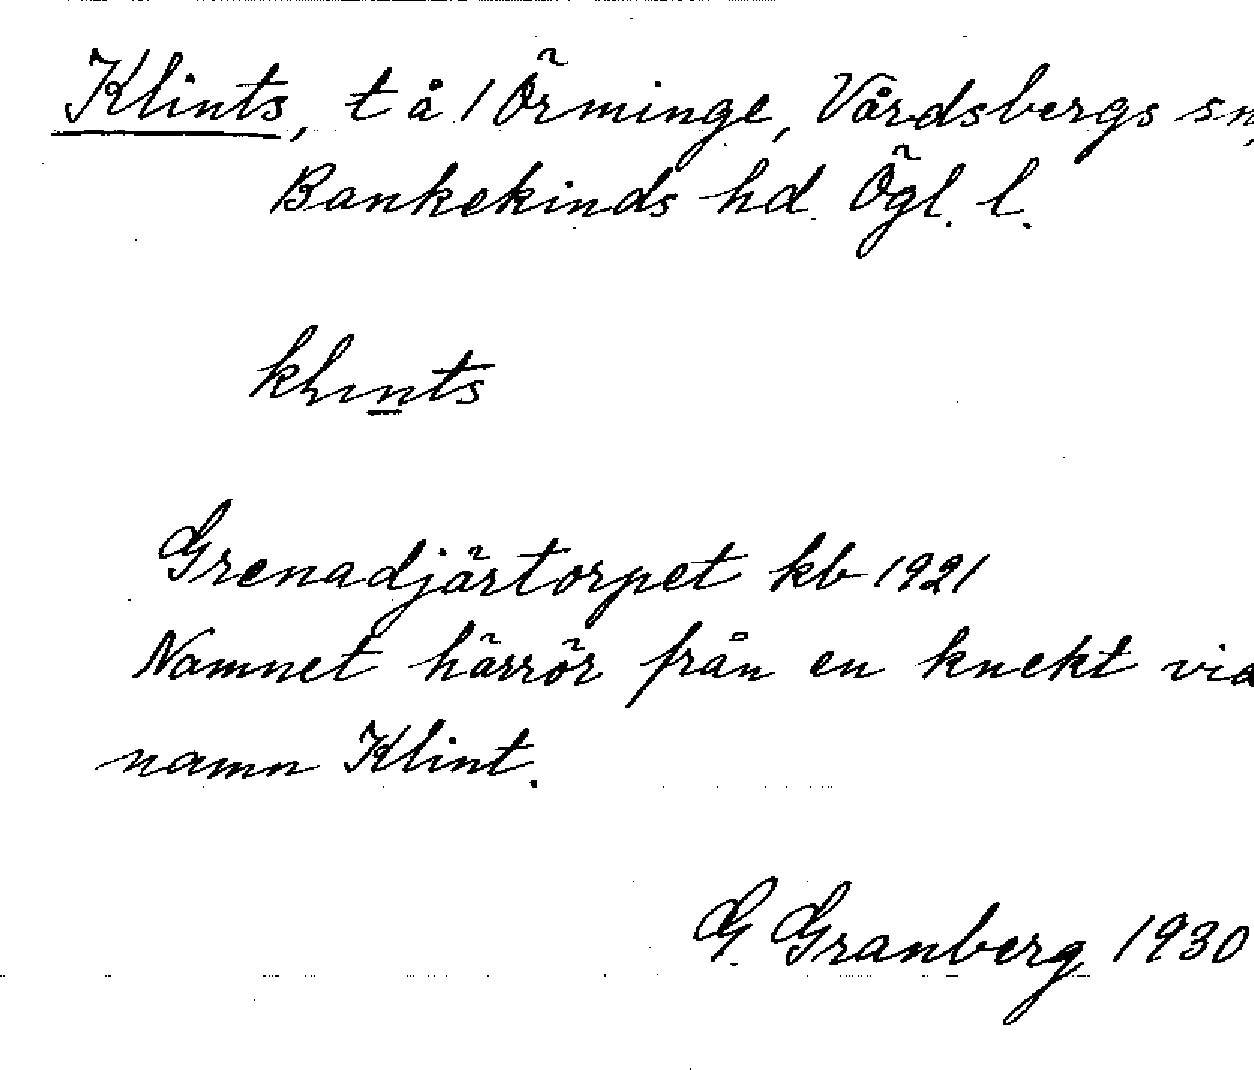 Klints, t å 1 Örminge, Vårdsbergs sn,
Bankekinds hd. Ögl. l.
klints
Grenadjärtorpet kb 1921
Namnet härrör från en knekt vid
namn Klint.
G. Granberg 1930